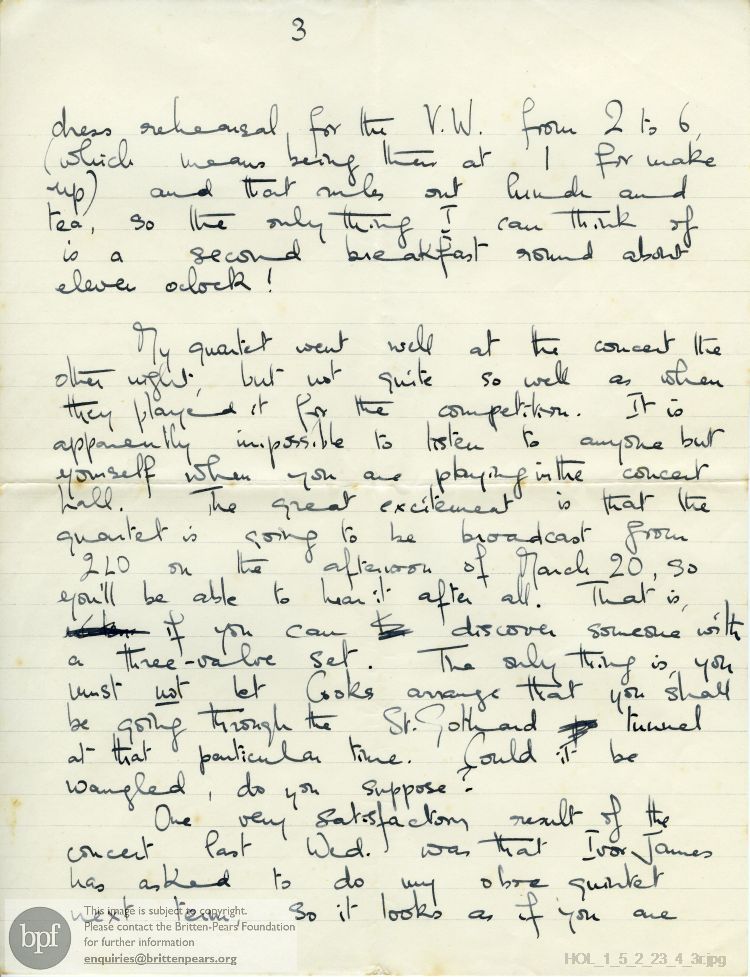 3
dress rehearsal for the V.W. from 2 to 6,
(which means being there at 1 for make
up) and that rules out lunch and
tea, so the only thing I can think of
is a second breakfast round about
eleven oclock!
My quartet went well at the concert the
other night, but not quite so well as when
they played it for the competition. It is
apparently impossible to listen to anyone but
yourself when you are playing in the concert
hall. The great excitement is that the
quartet is going to be broadcast from
2LO on the afternoon of March 20, so
you'll be able to hear it after all. That is,
if you can discover someone with
a three-valve set. The only thing is, you
must not let Cooks arrange that you shall
be going through the St. Gothard tunnel
at that particular time. Could it be
wangled, do you suppose?
One very satisfactory result of the
concert last Wed. was that Ivor James
has asked to do my oboe quintet
next term, so it looks as if you are
bpf
This image is subject to copyright.
Please contact the Britten-Pears Foundation
for further information
enquiries@brittenpears.org
HOL_1_5_2_23_4_3r.jpg